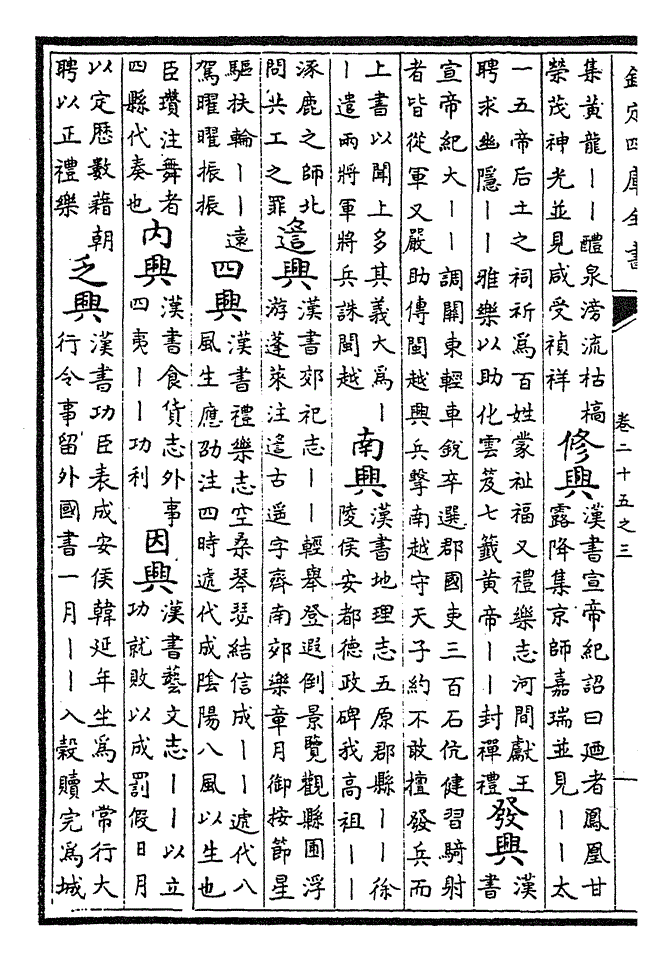 欽定四庫全書
卷二十五之三
集黄龍｜｜醴泉滂流枯槁
榮茂神光並見咸受禎祥
修興
漢書宣帝紀詔曰廼者鳳凰甘
露降集京師嘉瑞並見｜｜太
一五帝后土之祠祈為百姓蒙祉福又禮樂志河間獻王
聘求幽隱｜｜雅樂以助化雲笈七籤黃帝｜｜封禪禮
發興
漢
書
宣帝紀大｜｜調關東輕車銳卒選郡國吏三百石伉健習騎射
者皆從軍又嚴助傳閩越興兵擊南越守天子約不敢擅發兵而
上書以聞上多其義大為｜
｜遣兩將軍將兵誅閩越
南興
漢書地理志五原郡縣｜｜徐
陵侯安都德政碑我高祖｜｜
涿鹿之師北
問共工之罪
遙興
漢書郊祀志｜｜輕舉登遐倒景覽觀縣圃浮
游蓬萊注遙古遥字齊南郊樂章月御按節星
驅扶輪｜｜遠
駕曜曜振振
四興
漢書禮樂志空桑琴瑟結信成｜｜遞代八
風生應劭注四時遞代成陰陽八風以生也
臣瓚注舞者
四縣代奏也
內興
漢書食貨志外事
四夷｜｜功利
因興
漢書藝文志｜｜以立
功就敗以成罰假日月
以定歴數藉朝
聘以正禮樂
乏興
漢書功臣表成安侯韓延年坐為太常行大
行令事留外國書一月｜｜入穀贖完為城